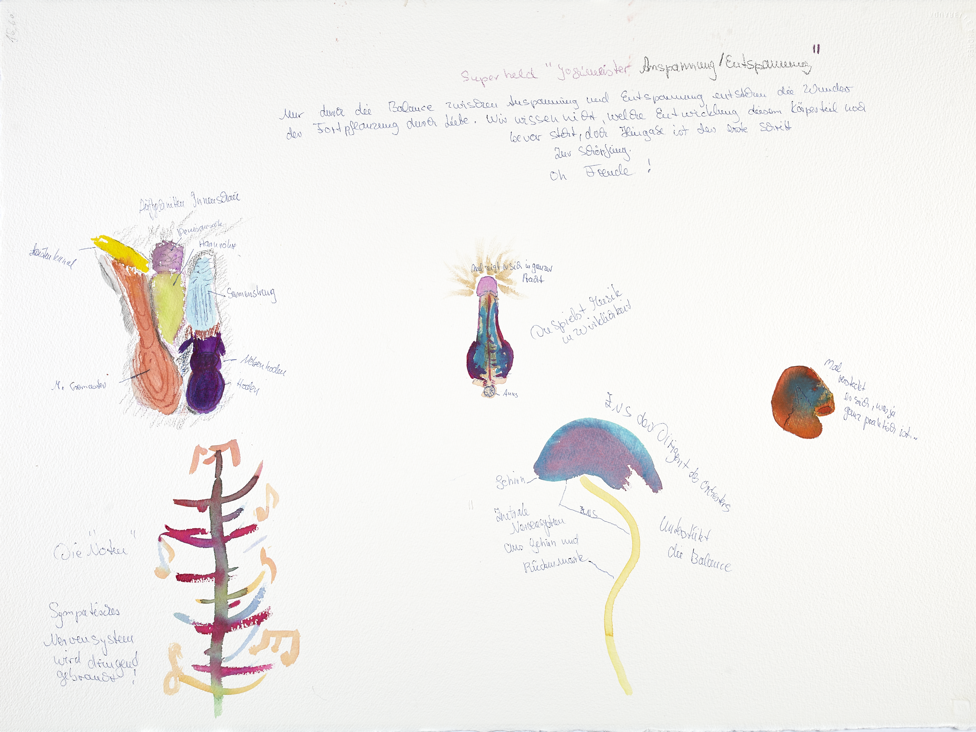 Superheld "Yogimeister Anspannung/Entspannung"
Nur durch die Balance zwischen Anspannung und Entspannung entstehen die Wunder
der Fortpflanzung durch Liebe. Wir wissen nicht, welche Entwicklung diesem Körperteil noch
bevor steht, doch Hingabe ist der erste Schritt
zur Schöpfung.
Oh Freude !
Innenschau
Harnröhre
Leistenkanal
Samenstrang
Nebenhoden
Hoden
und zeigt sich in ganzer
Pracht
Du spielst Musik
in Wirklichkeit
Anus
Mal
versteckt
er sich, was ja
ganz praktisch ist..
Z.N.S der Dirigent des Orchesters
Gehirn
Zentrale
Nervensystem
aus Gehirn und
Rückenmark
Unterstützt
die Balance
Die "Noten"
Sympatisches
Nervensystem
wird dringend
gebraucht !